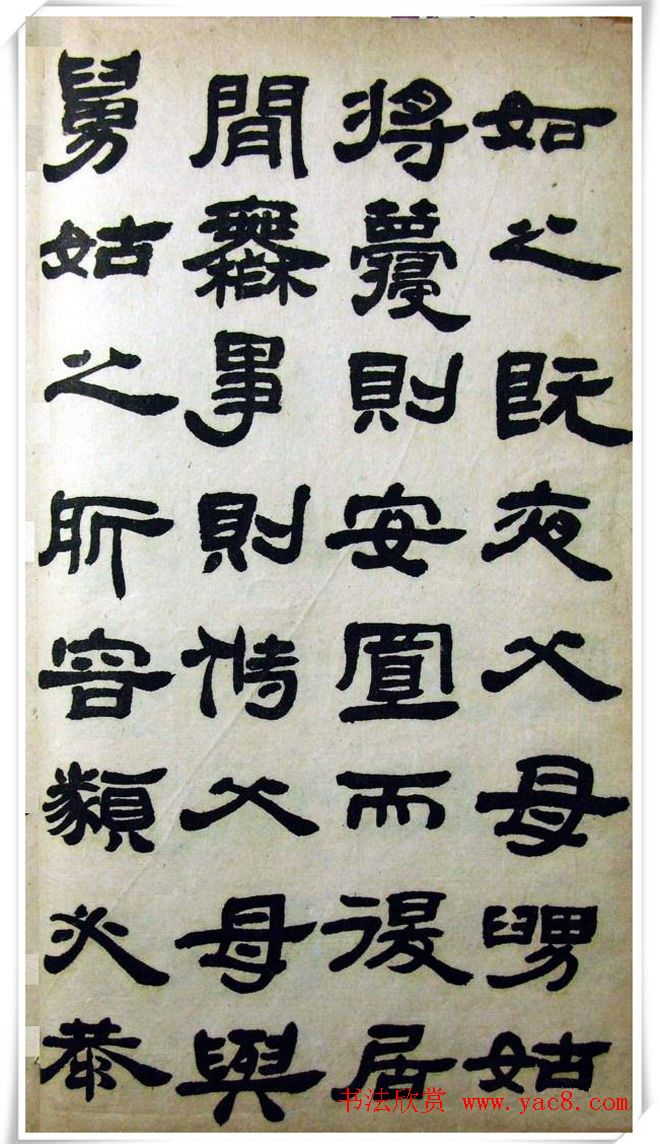 如之既夜父母舅姑
將寢則安置而退居
閒無事則侍父母與
舅姑之所容貌必恭
书法欣赏 www.yac8.com